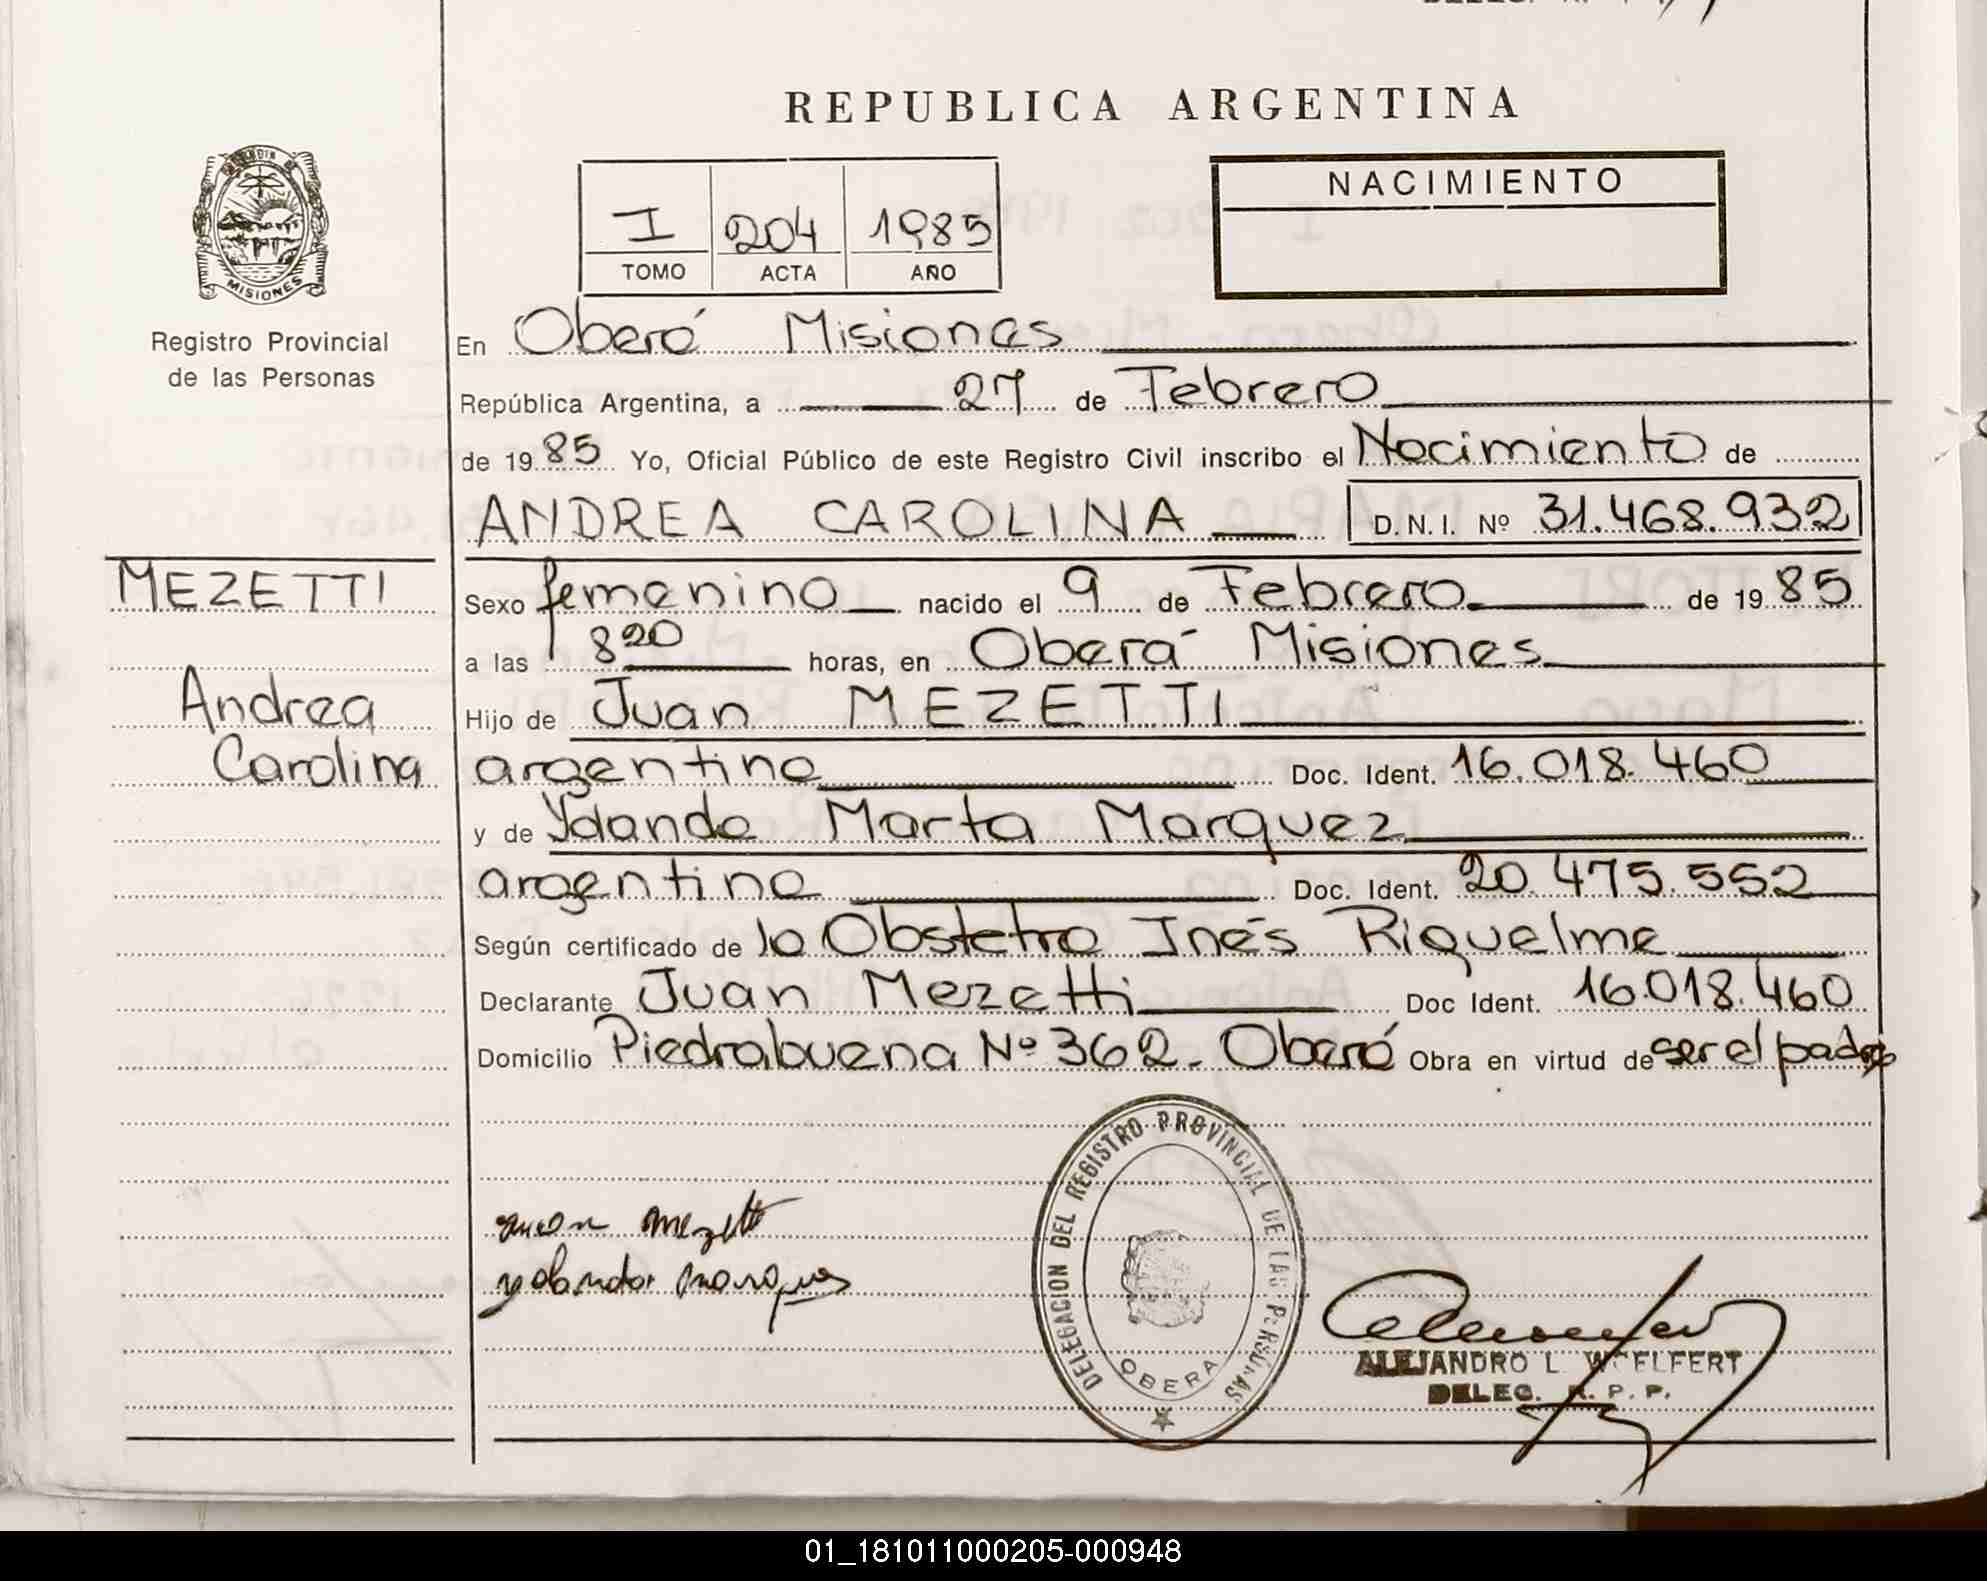 REPUBLICA ARGENTINA
MISIONES
Registro Provincial
de las Personas
I 204 1985
TOMO ACTA AÑO
NACIMIENTO
En Oberá Misiones
República Argentina, a 27 de Febrero
de 1985 Yo, Oficial Público de este Registro Civil inscribo el Nacimiento de
ANDREA CAROLINA D.N.I. Nº 31.468.932
MEZETTI
Andrea
Carolina
Sexo femenino nacido el 9 de Febrero de 1985
a las 8 20 horas, en Oberá Misiones
Hijo de Juan MEZETTI
argentino Doc. Ident. 16.018.460
y de Yolanda Marta Marquez
argentina Doc. Ident. 20.475.552
Según certificado de la Obstetra Inés Riquelme
Declarante Juan Mezetti Doc Ident. 16.018.460
Domicilio Piedrabuena Nº 362. Oberá Obra en virtud de ser el padre
juan Mezetti
yolanda marques
DELEGACION DEL REGISTRO PROVINCIAL DE LAS PERSONAS
OBERA
ALEJANDRO L. WOELFERT
DELEG. R. P. P.
01_181011000205-000948